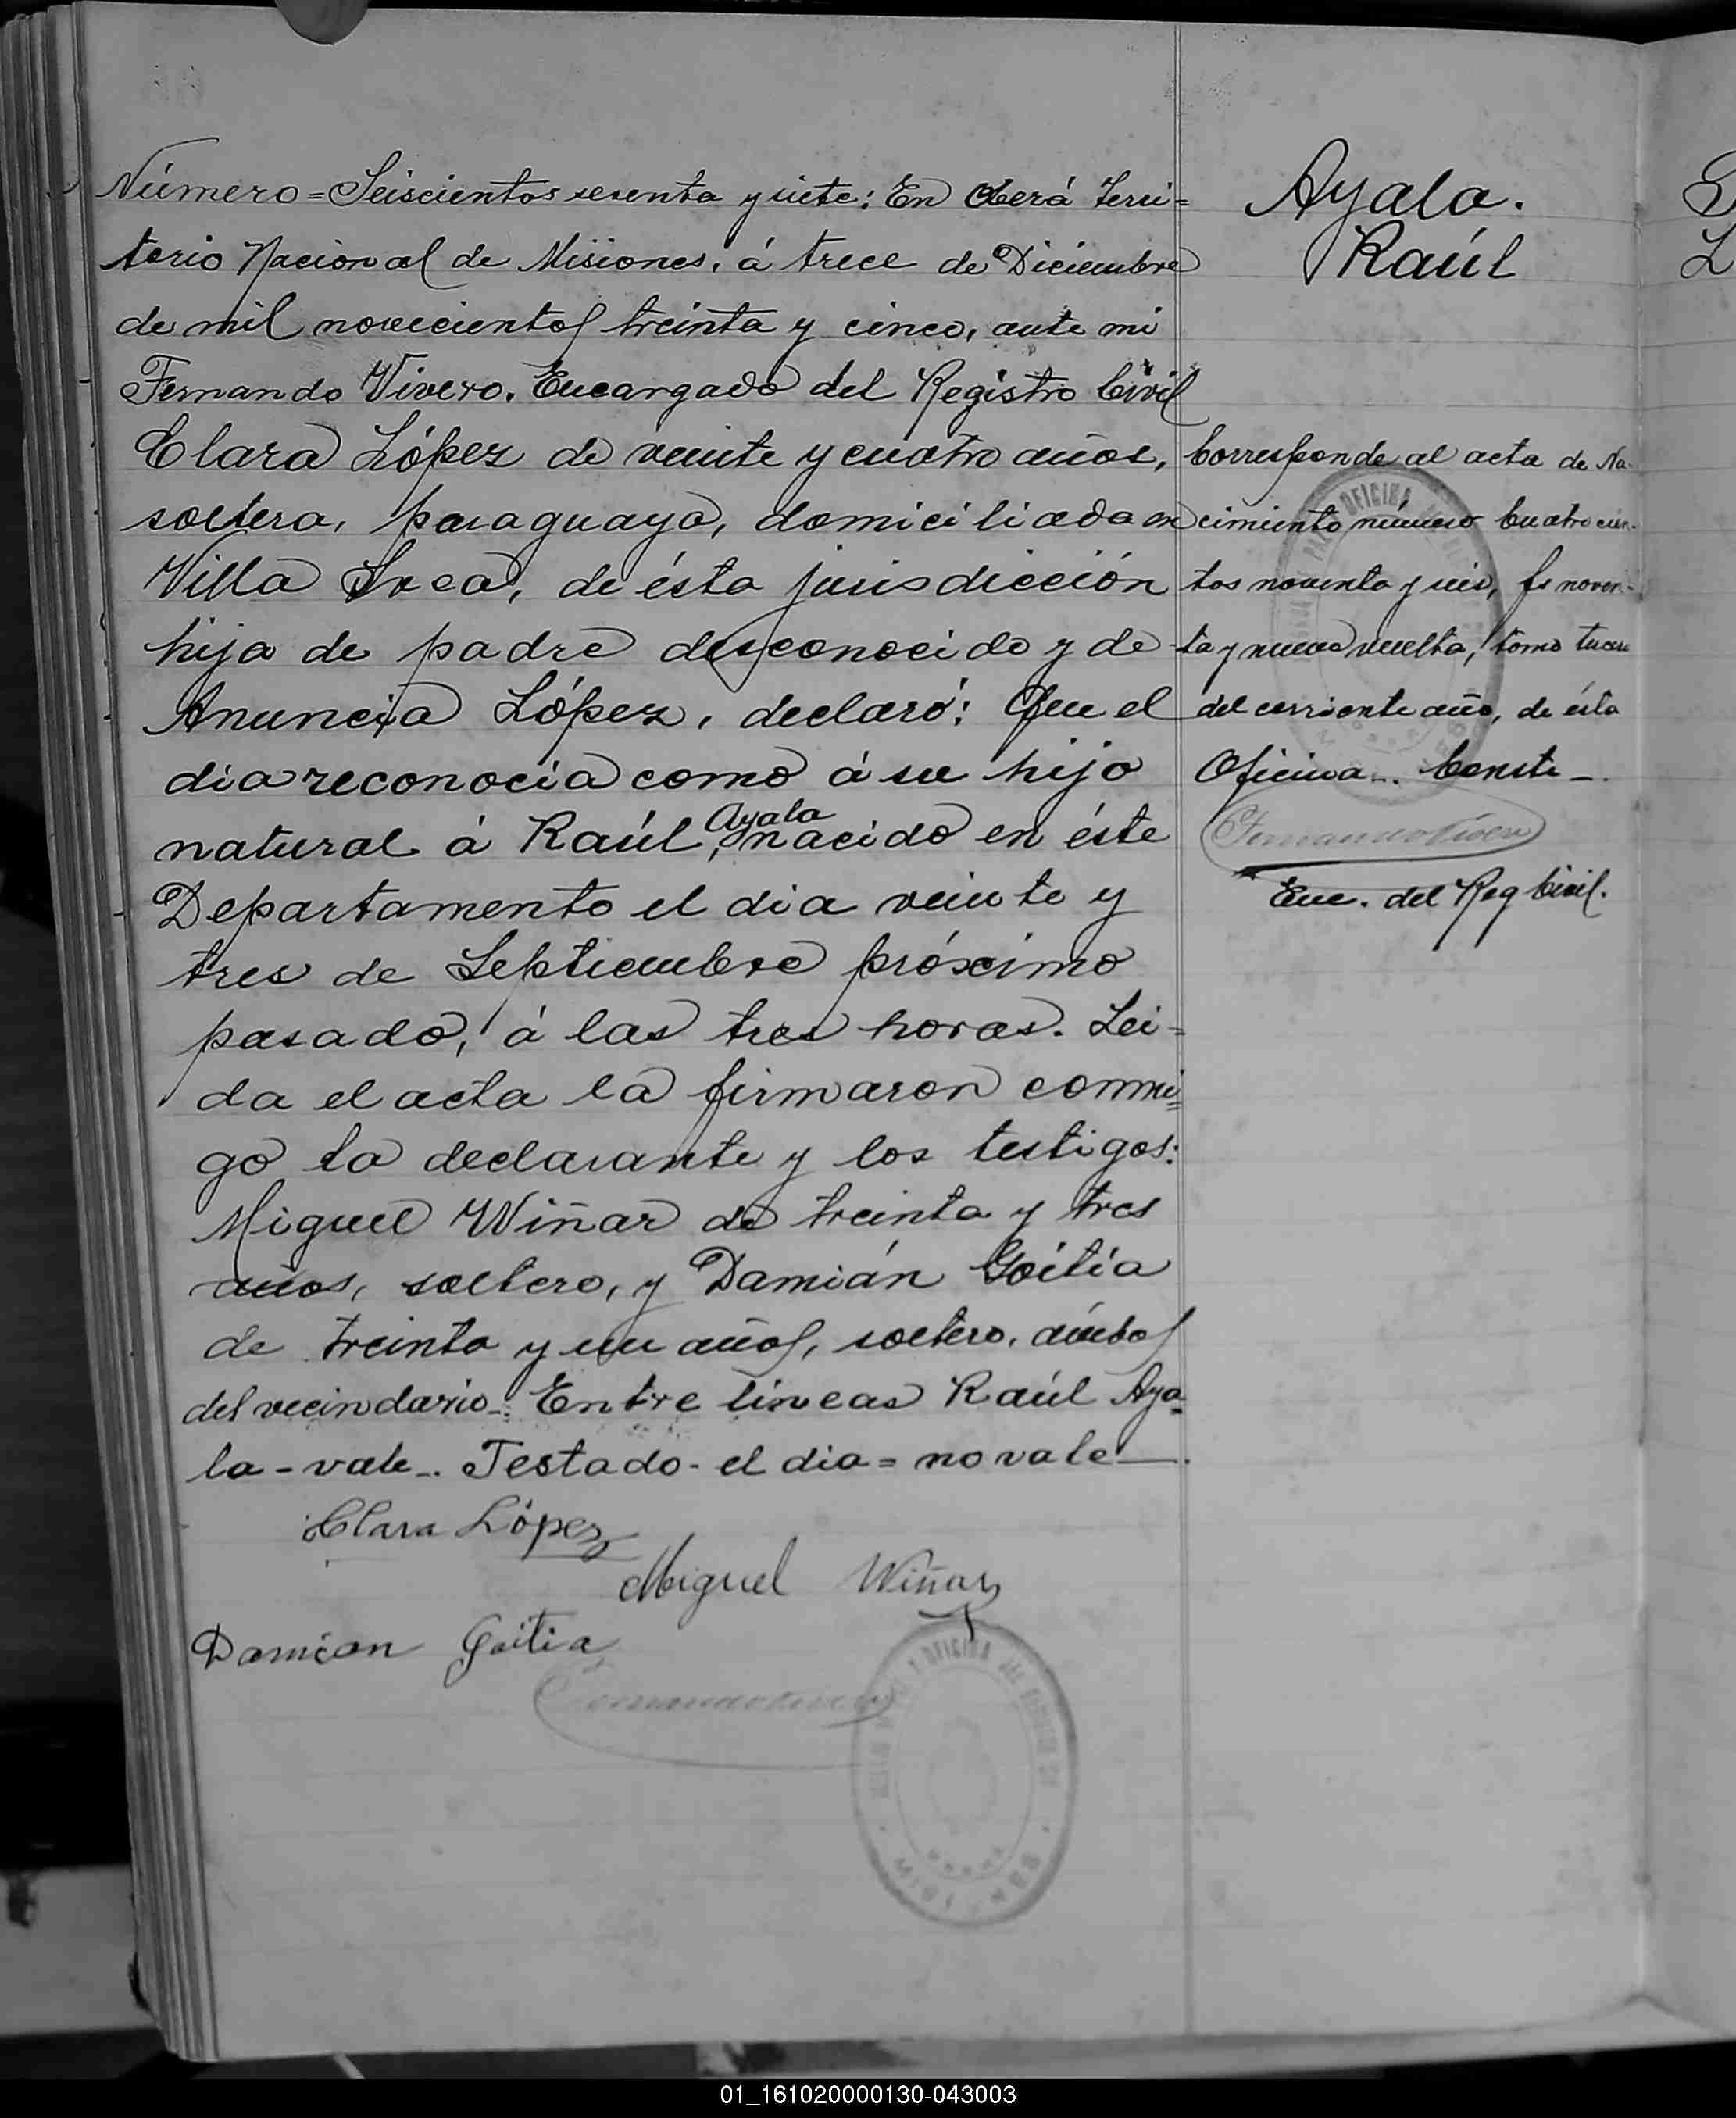 Número=Seiscientos sesenta y siete: En Oberá Terri=
torio Nacional de Misiones, á trece de Diciembre
de mil novecientos treinta y cinco, ante mi
Fernando Vivero. Encargado del Registro Civil
Clara López de veinte y cuatro años,
soltera, paraguaya, domiciliada en
Villa Svea, de ésta jurisdicción
hija de padre desconocido y de
Anuncia López, declaró: Que el
dia reconocia como á su hijo
natural á Raúl, Ayala nacido en éste
Departamento el dia veinte y
tres de Septiembre próximo
pasado, á las tres horas. Lei=
da el acta la firmaron conmi=
go la declarante y los testigos:
Miguel Wiñar de treinta y tres
años, soltero, y Damián Goitia
de treinta y un años, soltero, ámbos
del vecindario_. Entre líneas Raúl Aya=
la-vale_. Testado-el dia=no vale_.
Clara López
Miguel Wiñar
Damian Goitia
Ayala.
Raúl
Corresponde al acta de Na-
cimiento número Cuatrocien-
tos noventa y seis, fs noven-
ta y nueve vuelta, tomo tercero
del corriente año, de ésta
Oficina_. Conste_.
Fernando Vivero
Enc. del Reg Civil.
01_161020000130-043003